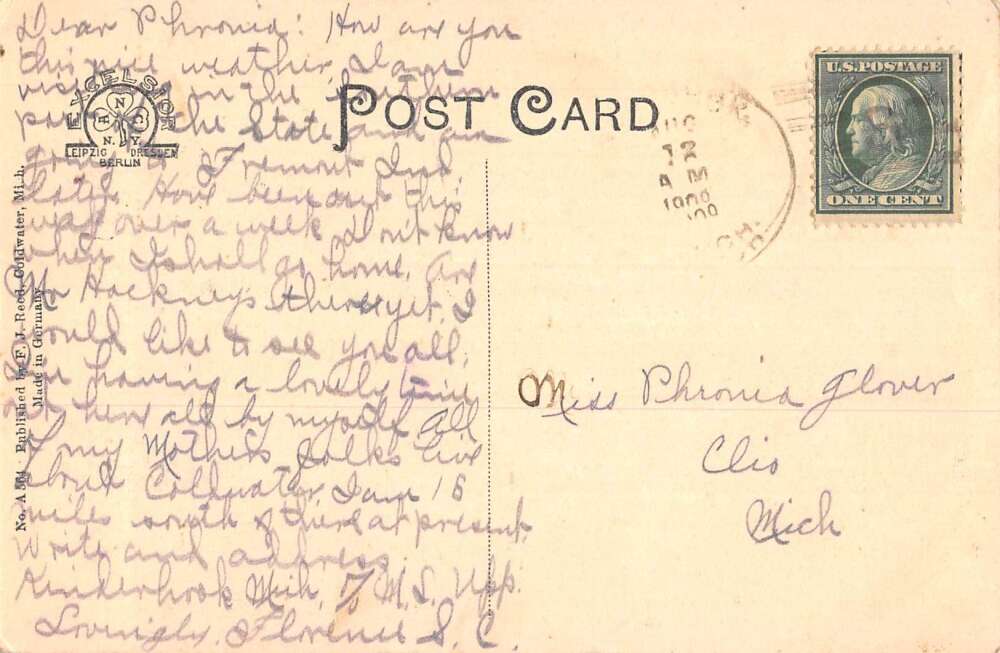 Dear Phronia: How are you
this nice weather, I am
visiting in the southern
part of the State and am
going to Fremont Ind
later. Have been out this
way over a week. Don't know
when I shall go home. Are
Mr Hackneys there yet. I
would like to see you all.
am having a lovely time
out here all by myself. All
of my Mothers folks live
about Coldwater, I am 16
miles south of there at present.
Write and address
Kinderhook Mich, % M. S.
Lovingly, Florence S. C.
EXCELSIOR
A N C
N. Y.
LEIPZIG DRESDEN
BERLIN
No. A 564 Published by F. J. Reed, Coldwater, Mich.
Made in Germany
POST CARD
AUG
12
A M
1909
U.S. POSTAGE
ONE CENT
Miss Phronia Glover
Clio
Mich